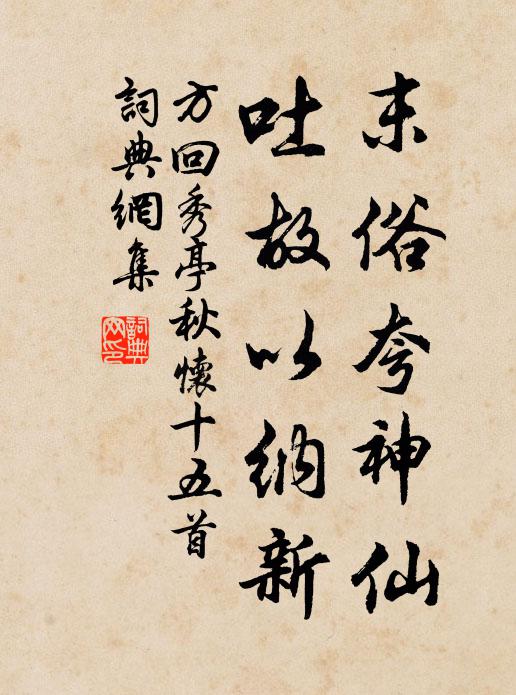 末俗夸神仙
吐故以纳新
方回秀亭秋懷十五首
詞典網集
詞典网印